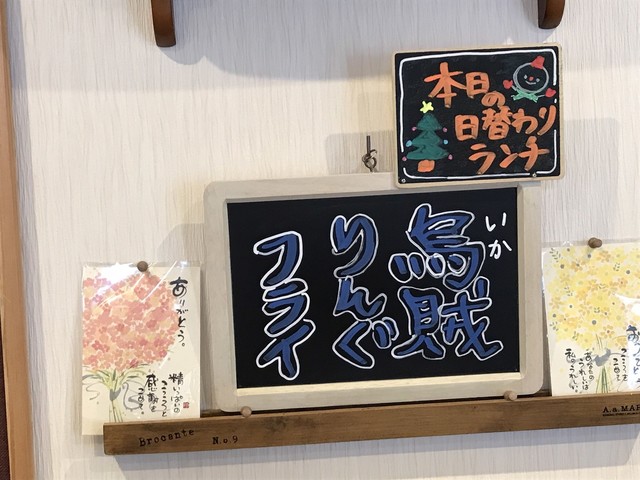 本日の
日替わり
ランチ
いか
烏賊
りんぐ
フライ
ありがとう。
精いっぱいの
こころと
感謝を
こめて。
Brocante No.9